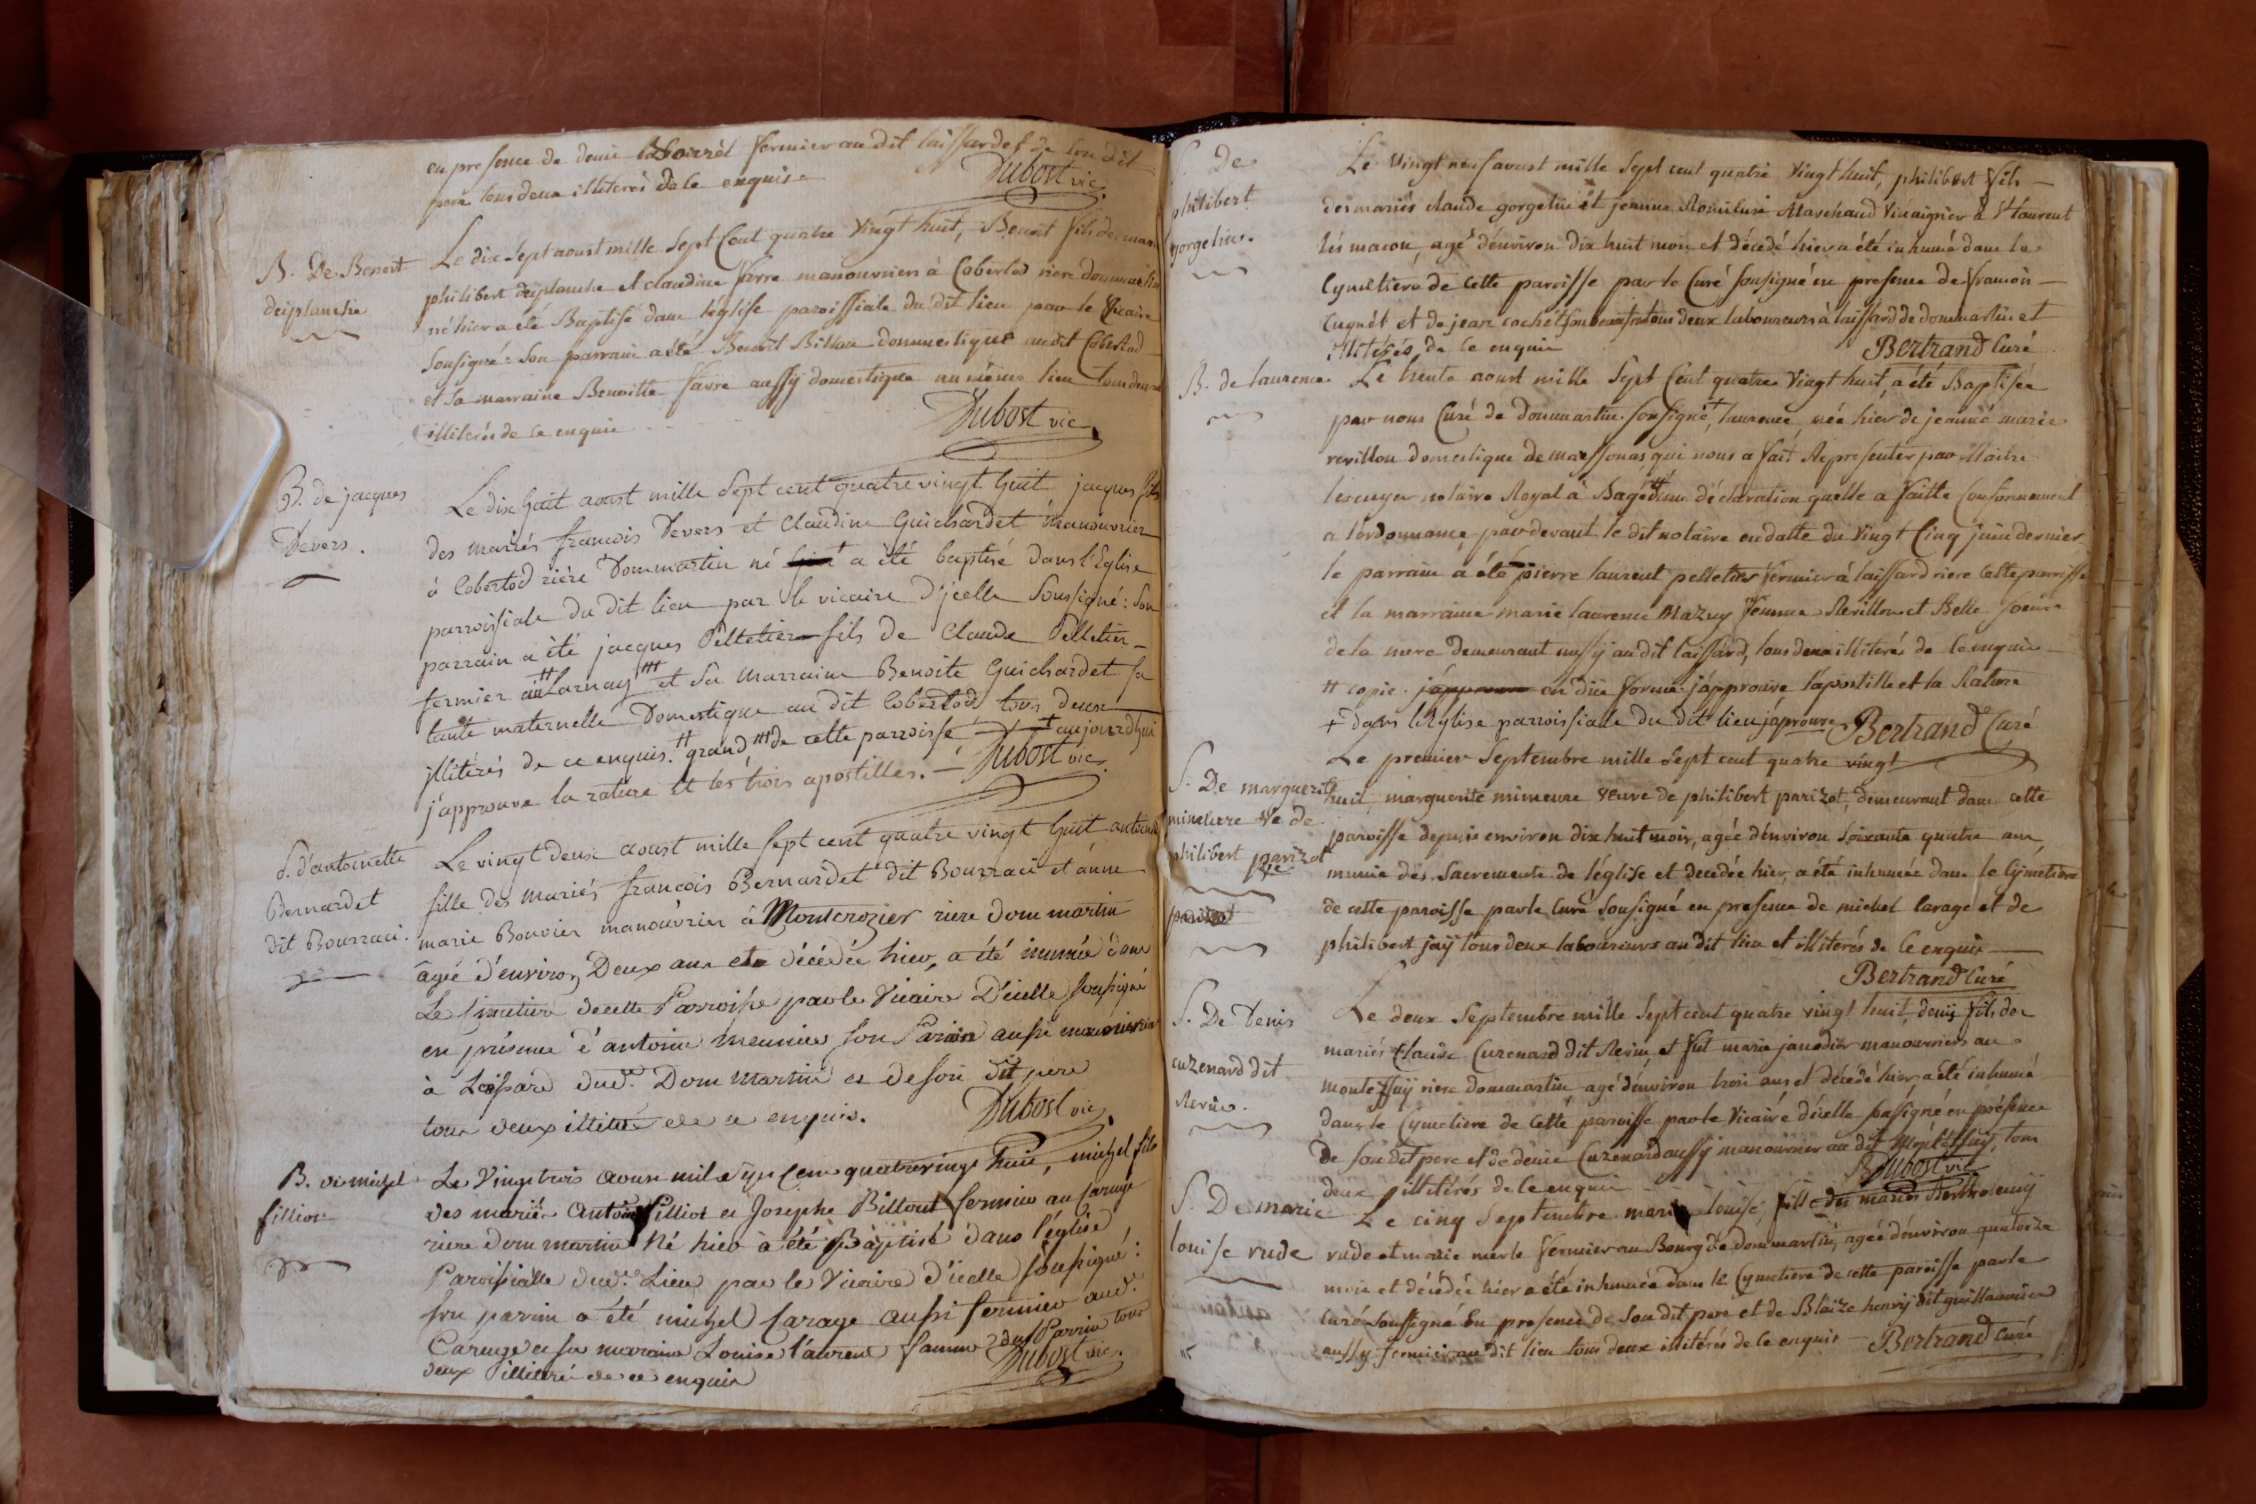 en presence de denis fermier au dit laissardet de son dit
pere tous deux illiterés de ce enquis
Dubost vic.
B. De Benoit
desplanche
Le dix Sept aoust mille Sept Cent quatre Vingt huit, Benoit fils de
philibert desplanche et claudine farre manouvriers à Cobertod riere dommartin
né hier a été Baptisé dans leglise paroissiale du dit lieu par le Vicaire
Sousigné: Son parrain a été Benoit Billon dommestique au dit Cobertod
et Sa marraine Benoitte favre aussÿ domestique au même lieu tous deux
illiterés de ce enquis
Dubost vic.
B. de jacques
Devers.
Le dix huit aoust mille Sept cent quatre vingt huit jacques fils
des mariés francois Devers et Claudine Guichardet manouvrier
à Cobertod riére Dommartin né + a été baptisé dans l'Eglise
parroissiale du dit lieu par le vicaire d'jcelle Soussigné: Son
parrain a été jacques Pelletier fils de Claude Pelletier
fermier au # Larnay ### et Sa Marraine Benoite Guichardet Sa
tante maternelle Domestique au dit Cobertod tous deux
jllitérés de ce enquis. # grand ### de cette parroisse + aujourdhui
j'approuve la rature et les trois apostilles.
Dubost vic.
S. d'antoinette
Bernardet
dit Bourraci.
Le vingt deux aoust mille Sept cent quatre vingt huit
fille des mariés francois Bernardet dit Bourraci et anne
marie Bouvier manoûvrier à Montcrozier riere Dommartin
âgée d'environ Deux ans et décédée hier, a été inumée dans
Le Simetiere de cette Parroisse par le Vicaire D'icelle soussigné
en présence d'antoine meunier son Parain aussi manouvrier
à Laissard dud. Dom Martin et de son dit pere
tous deux illitéré de ce enquis.
Dubost vic.
B. de michel
fillion
Le Vingt trois aoust mil Sept Cent quatrevingt huit, michel fils
des mariés Antoine fillion et Josephe Billout fermier au Caruge
riere dom martin Né hier a été Baptisé dans l'église
Paroissialle dud. Lieu par le Vicaire d'icelle soussigné:
son parain a été michel Carage aussi fermier aud.
Caruge et sa maraine Louise laurent famme dud Parrin tous
deux illitéré de ce enquis
Dubost vic.
S. De
philibert
gorgelin.
Le Vingt neuf avoust mille Sept cent quatre Vingt huit, philibert fils
des mariés claude gorgelin et jeanne Marchand Vinaigrier à St laurent
lès macon, agé d'environ dix huit mois et décédé hier a été inhumé dans le
Cymetiere de cette paroisse par le Curé Sousigné en presence de francois
Cugnet et de jean cochet tous deux laboureurs à laissard de dommartin et
illiterés, de ce enquis
Bertrand Curé
B. de laurence
Le trente aoust mille Sept Cent quatre Vingt huit, a été Baptisée
par nous Curé de Dommartin Sousigné + laurence, née hier de jeanne marie
revillon domestique de massonas qui nous a fait Representer par Maitre
lescuyer notaire Royal à Bagé # une déclaration quelle a faitte Conformement
a l'ordonnance, pardevant le dit notaire en datte du Vingt Cinq juin dernier
le parrain a été pierre laurent pelletier fermier à laissard riere Cette parroisse
et la marraine marie laurence Mazuy femme Revillon et Belle Soeur
de la mere demeurant aussÿ au dit laissard, tous deux illiterés de ce enquis
# copie. en düe forme. j'approuve l'apostille et la Rature
+ dans l'Eglise parroissiale du dit lieu j'aprouve
Bertrand Curé
S. De marguerite
mimeure Ve de
philibert parizot
Le premier Septembre mille Sept cent quatre vingt
huit, marguerite mimeure veuve de philibert parizot, demeurant dans cette
paroisse depuis environ dix huit mois, agée d'environ Soixante quatre ans
munie des Sacrements de l'église et decedée hier, a été inhumée dans le Cymetiere
de cette paroisse par le Curé Sousigné en presence de michel Carage et de
philibert jaÿ tous deux laboureurs au dit lieu et illiterés de ce enquis
Bertrand Curé
S. De Denis
cuzenard dit
Revin.
Le deux Septembre mille Sept cent quatre vingt huit, denis fils des
mariés Claude Cuzenard dit Revin, et fut marie janodier manouvriers au
montessuÿ riere dommartin agé d'environ trois ans et décédé hier a été inhumé
dans le Cymetiere de Cette paroisse par le Vicaire d'icelle Sousigné en présence
de Son dit pere et de denis Cuzenard aussÿ manouvrier au dit Montessuÿ, tous
deux illitérés de ce enquis
Dubost vic
S. De marie
louise rude
Le cinq Septembre marie louise, fille des mariés Bartholemÿ
rude et marie merle fermier au Bourg de dommartin, agée d'environ quatorze
mois et décédée hier a été inhumée dans le Cymetiere de cette paroisse par le
Curé Soussigné En presence de Son dit pere et de Blaize henrÿ dit guillaumin
aussÿ fermier au dit lieu tous deux illiterés de ce enquis
Bertrand Curé